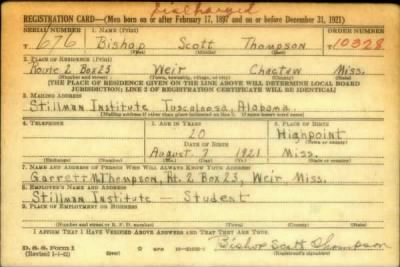 Discharged
REGISTRATION CARD—(Men born on or after February 17, 1897 and on or before December 31, 1921)
SERIAL NUMBER 1. NAME (Print) ORDER NUMBER
T 676 Bishop Scott Thompson 10328
(First) (Middle) (Last)
2. PLACE OF RESIDENCE (Print)
Route 2 Box 23 Weir Choctaw Miss.
(Number and street) (Town, township, village, or city) (County) (State)
[THE PLACE OF RESIDENCE GIVEN ON THE LINE ABOVE WILL DETERMINE LOCAL BOARD
JURISDICTION; LINE 2 OF REGISTRATION CERTIFICATE WILL BE IDENTICAL]
3. MAILING ADDRESS
Stillman Institute Tuscoloosa, Alabama
[Mailing address if other than place indicated on line 2. If same insert word same]
4. TELEPHONE 5. AGE IN YEARS 6. PLACE OF BIRTH
20 Highpoint
DATE OF BIRTH (Town or county)
August 7 1921 Miss.
(Exchange) (Number) (Mo.) (Day) (Yr.) (State or country)
7. NAME AND ADDRESS OF PERSON WHO WILL ALWAYS KNOW YOUR ADDRESS
Garrett M Thompson, Rt. 2 Box 23, Weir, Miss.
8. EMPLOYER'S NAME AND ADDRESS
Stillman Institute — Student
9. PLACE OF EMPLOYMENT OR BUSINESS
(Number and street or R. F. D. number) (Town) (County) (State)
I AFFIRM THAT I HAVE VERIFIED ABOVE ANSWERS AND THAT THEY ARE TRUE.
D. S. S. Form 1
(Revised 1-1-42) (over) Bishop Scott Thompson
(Registrant's signature)